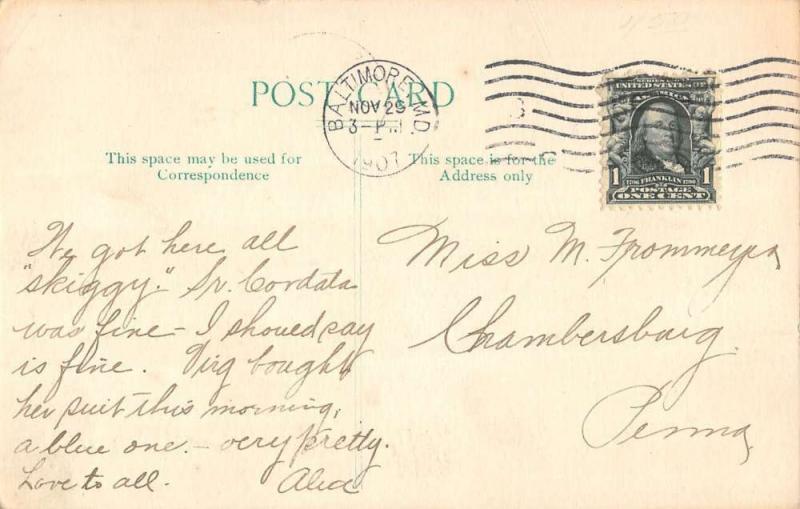 POST CARD
BALTIMORE, M.D.
NOV 29
3-PM
1907
This space may be used for
Correspondence
This space is for the
Address only
SERIES 1902
UNITED STATES OF
AMERICA
1 1706 FRANKLIN 1790 1
POSTAGE
ONE CENT
We got here all
"skiggy." Sr. Cordata
was fine - I should say
is fine. Virg bought
her suit this morning,
a blue one. - very pretty.
Love to all.
Miss M. Frommeyer
Chambersburg.
Penna